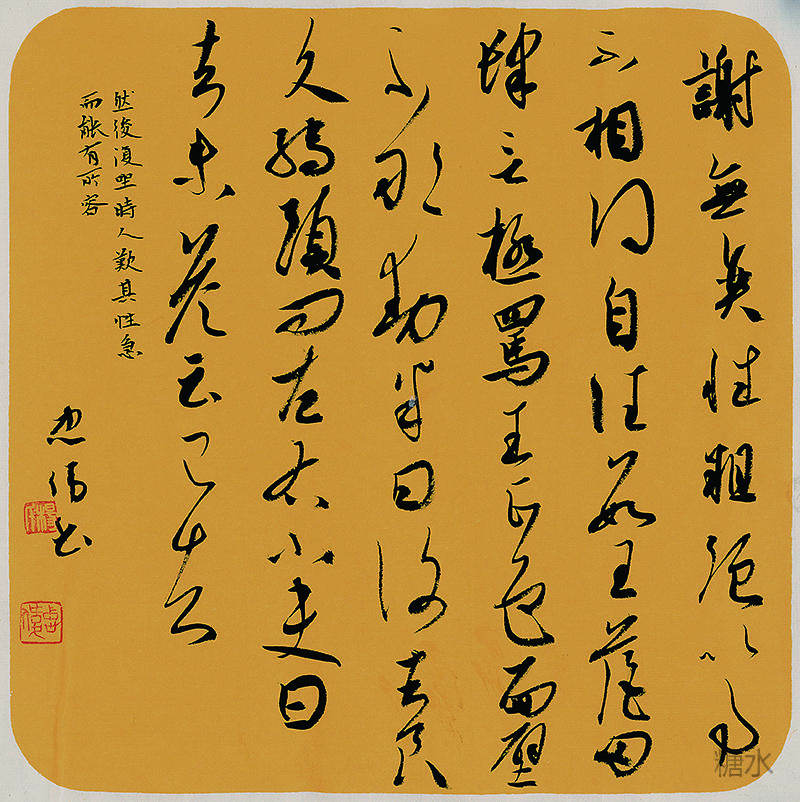 謝無奕性粗强以事
不相得自往数王藍田
肆言極罵王正色面壁
不敢動半日謝去良
久轉頭問左右小吏曰
去未答云已去
然後復坐時人歎其性急
而能有所容
忠偉书
糖水